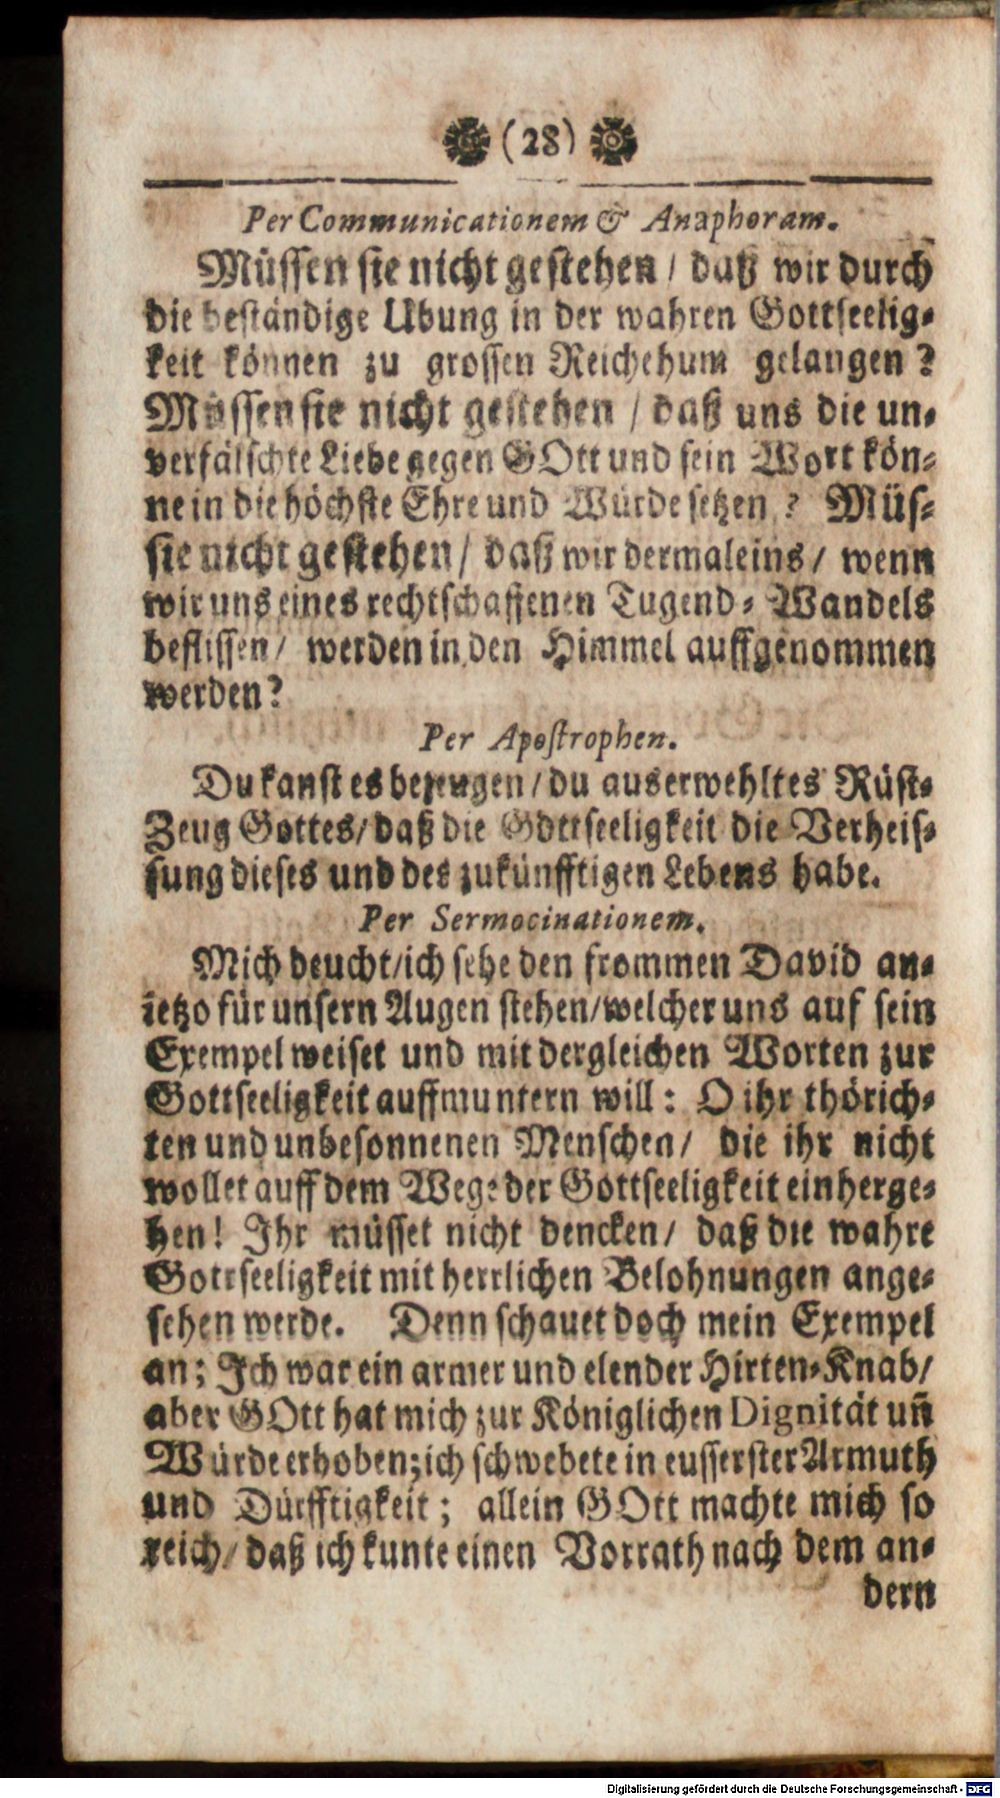 (28)
Per Communicationem & Anaphoram.
Müssen sie nicht gestehen / daß wir durch
die beständige Ubung in der wahren Gottseelig-
keit können zu grossen Reichehum gelangen?
Müssen sie nicht gestehen / daß uns die un-
verfälschte Liebe gegen GOtt und sein Wort kön-
ne in die höchste Ehre und Würde setzen? Müs-
sie nicht gestehen / daß wir dermaleins / wenn
wir uns eines rechtschaffenen Tugend-Wandels
beflissen / werden in den Himmel auffgenommen
werden?
Per Apostrophen.
Du kanst es bezeugen / du auserwehltes Rüst-
Zeug Gottes / daß die Gottseeligkeit die Verheis-
sung dieses und des zukünfftigen Lebens habe.
Per Sermocinationem.
Mich deucht / ich sehe den frommen David an-
ietzo für unsern Augen stehen / welcher uns auf sein
Exempel weiset und mit dergleichen Worten zur
Gottseeligkeit auffmuntern will: O ihr thörich-
ten und unbesonnenen Menschen / die ihr nicht
wollet auff dem Wege der Gottseeligkeit einherge-
hen! Ihr müsset nicht dencken / daß die wahre
Gottseeligkeit mit herrlichen Belohnungen ange-
sehen werde. Denn schauet doch mein Exempel
an; Ich war ein armer und elender Hirten-Knab /
aber GOtt hat mich zur Königlichen Dignität un̄
Würde erhoben; ich schwebete in eusserster Armuth
und Dürfftigkeit; allein GOtt machte mich so
reich / daß ich kunte einen Vorrath nach dem an-
dern
Digitalisierung gefördert durch die Deutsche Forschungsgemeinschaft - DFG